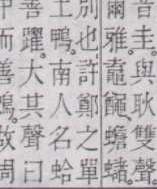 音圭與雙聲
爾雅。蟾蠩。
別也許鄭之單
土鴨。南人名蛤
善躍。大其聲曰
而善鳴。故周